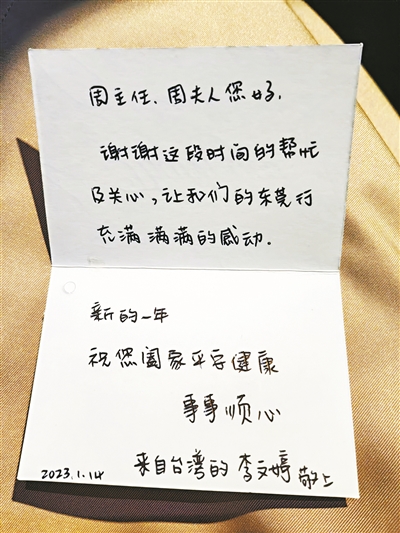 周主任、周夫人您好,
谢谢这段时间的帮忙
及关心,让我们的东莞行
充满满满的感动.
新的一年
祝您阖家平安健康
事事顺心
来自台湾的 李文婷 敬上
2023.1.14